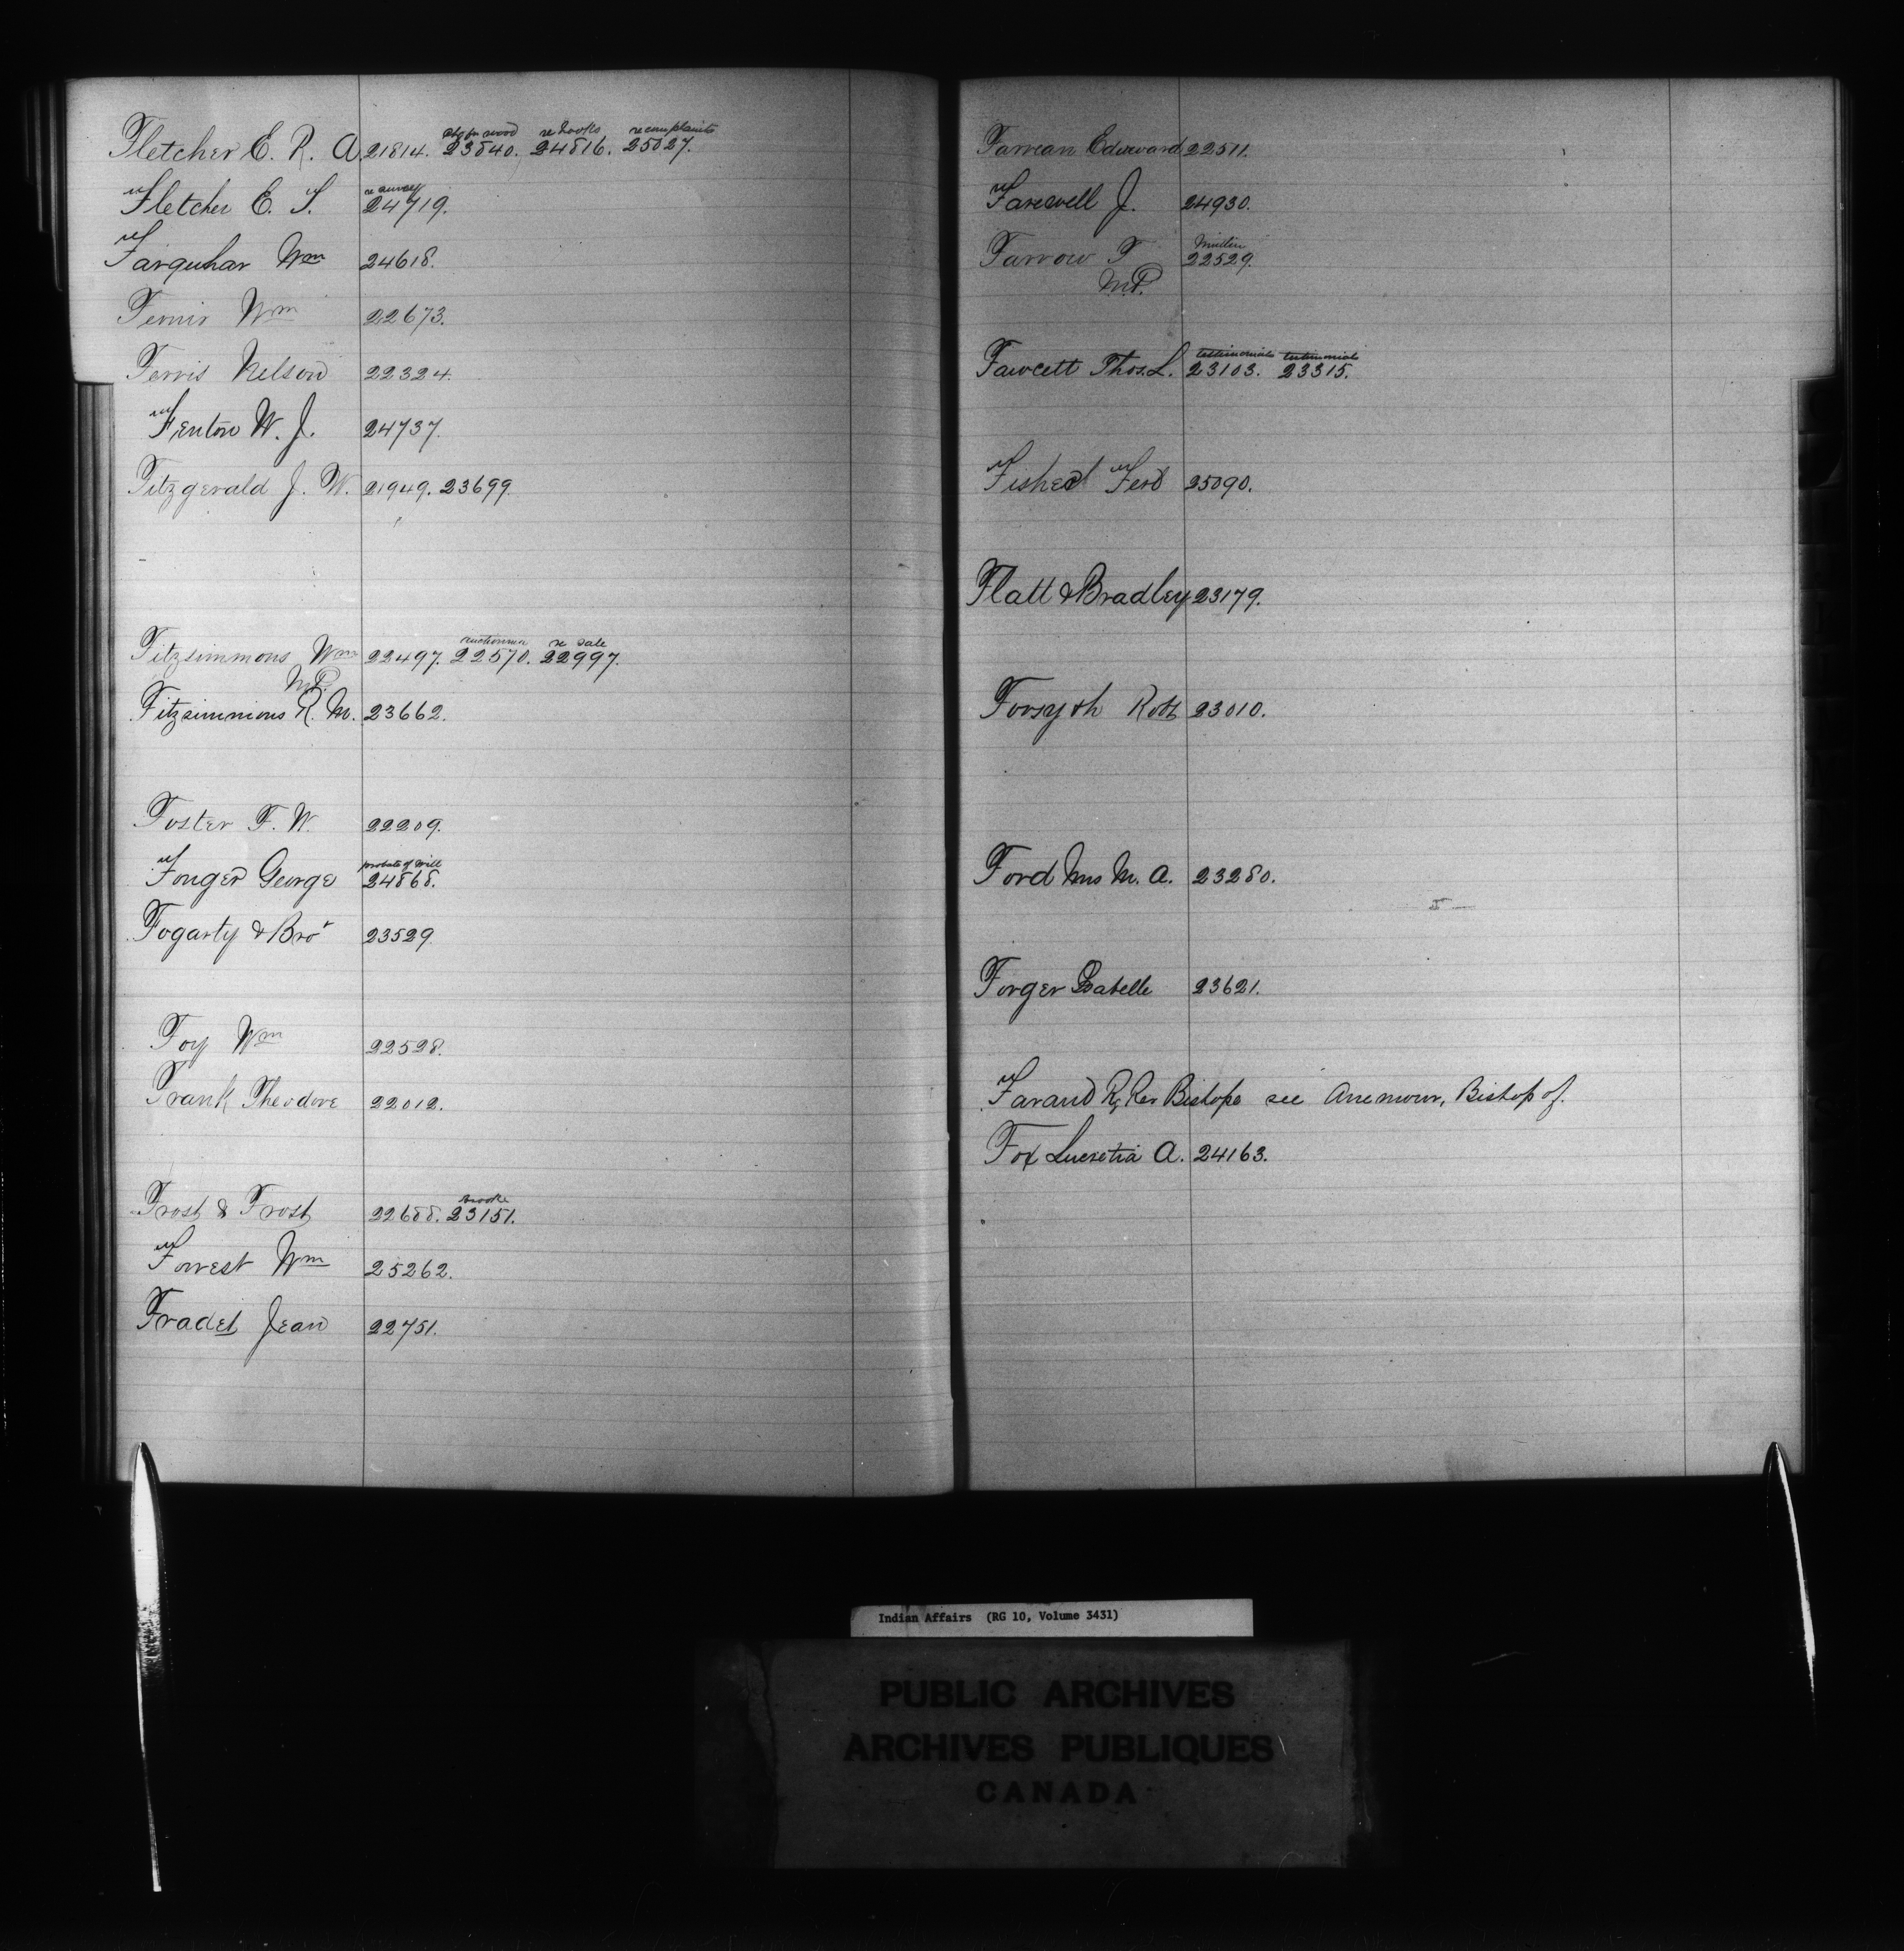 Fletcher E. R. A. 21814. 23840. 24816. 25027.
re books re complaints
re survey
Fletcher E. S. 24719.
Farquhar Wm 24618.
Ferris Wm 22673.
Ferris Nelson 22324.
Fenton W. J. 24737.
Fitzgerald J. W. 21949. 23699.
auctioneer re sale
Fitzsimmons Wm 22497. 22570. 22997.
M.P.
Fitzsimmons R. M. 23662.
Foster F. W. 22209.
probate of will
Fonger George 24868.
Fogarty & Bror 23529.
Foy Wm 22528.
Frank Theodore 22012.
Frost & Frost 22688. 23151.
Forrest Wm 25262.
Fradet Jean 22751.
Edward 22511.
Farewell J. 24930.
Farrow T 22529.
M.P.
testimonials testimonials
Fawcett Thos. L. 23103. 23315.
Fisher Ferd 25090.
Flatt & Bradley 23179.
Forsyth Robt 23010.
Ford Mrs M. A. 23280.
Forger Isabelle 23621.
Faraud Rt Rev Bishop see Anemour, Bishop of.
Fox Lucretia A. 24163.
Indian Affairs (RG 10, Volume 3431)
PUBLIC ARCHIVES
ARCHIVES PUBLIQUES
CANADA